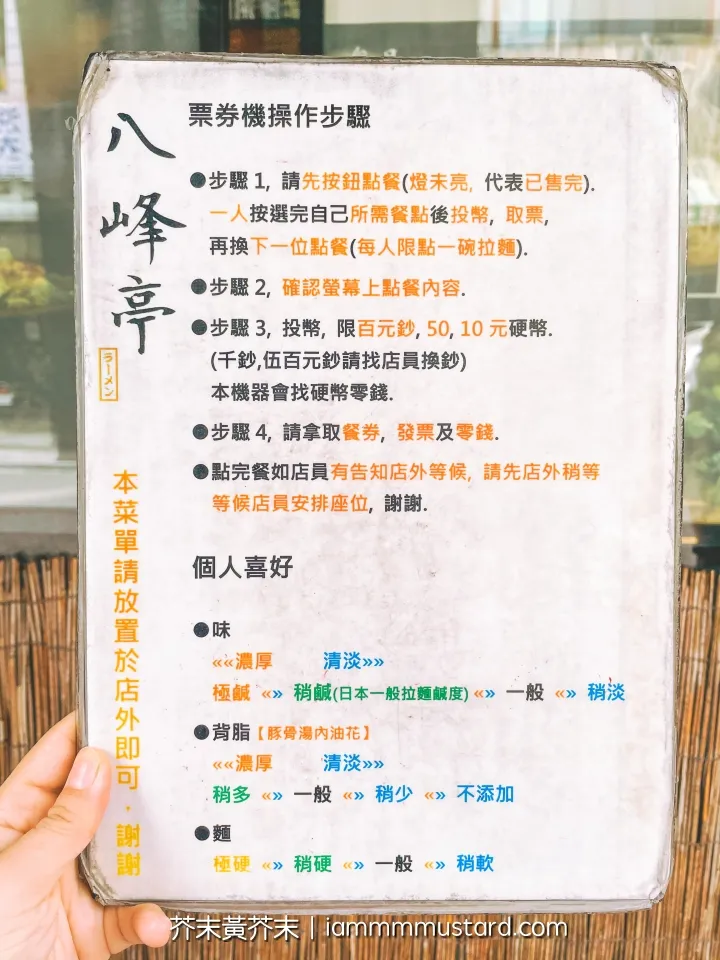 八峰亭
ラーメン
本菜單請放置於店外即可，謝謝
票券機操作步驟
●步驟 1, 請先按鈕點餐(燈未亮, 代表已售完).
一人按選完自己所需餐點後投幣, 取票,
再換下一位點餐(每人限點一碗拉麵).
●步驟 2, 確認螢幕上點餐內容.
●步驟 3, 投幣, 限百元鈔, 50, 10 元硬幣.
(千鈔,伍百元鈔請找店員換鈔)
本機器會找硬幣零錢.
●步驟 4, 請拿取餐券, 發票及零錢.
●點完餐如店員有告知店外等候, 請先店外稍等
等候店員安排座位, 謝謝.
個人喜好
●味
««濃厚 清淡»»
極鹹 «» 稍鹹(日本一般拉麵鹹度) «» 一般 «» 稍淡
●背脂【豚骨湯內油花】
««濃厚 清淡»»
稍多 «» 一般 «» 稍少 «» 不添加
●麵
極硬 «» 稍硬 «» 一般 «» 稍軟
芥末黃芥末 | iammmmustard.com